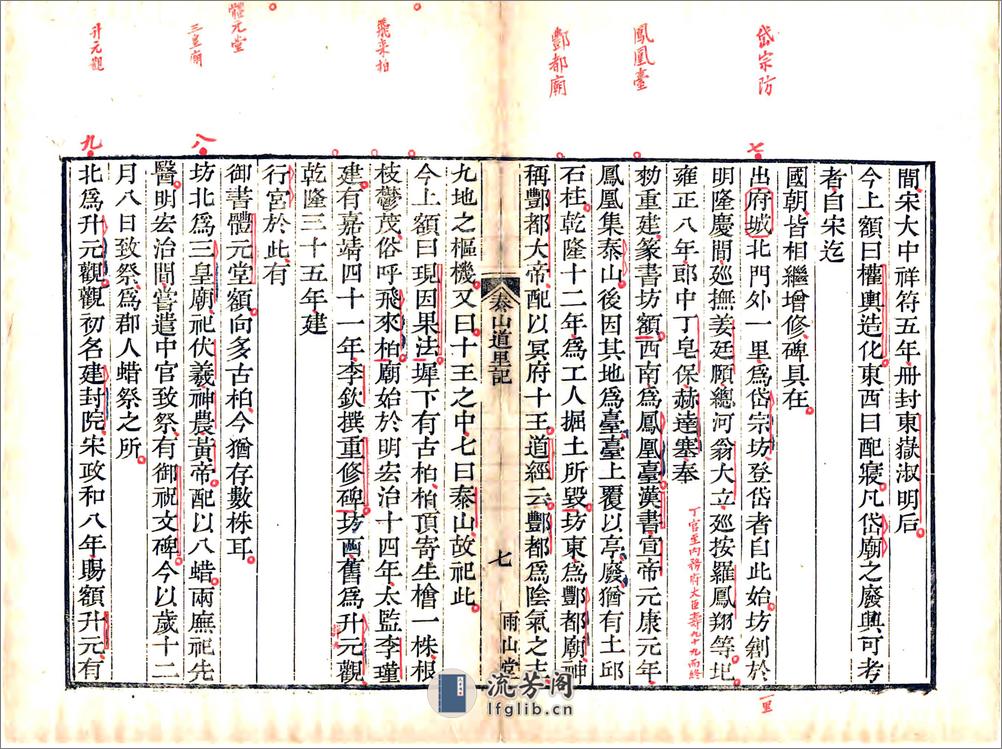 岱宗防
鳳凰臺
酆都廟
飛來柏
體元堂
三皇廟
升元觀
七
八
九
間宋大中祥符五年册封東嶽淑明后
今上額曰權輿造化東西曰配寢凡岱廟之廢興可考
者自宋迄
國朝皆相繼增修碑具在
出府城北門外一里爲岱宗坊登岱者自此始坊創於
明隆慶間廵撫姜廷頤總河翁大立廵按羅鳳翔等圯
雍正八年郎中丁皂保赫達塞奉
丁官至內務府大臣壽九十九而終
勅重建篆書坊額西南爲鳳凰臺漢書宣帝元康元年
鳳凰集泰山後因其地爲臺臺上覆以亭廢猶有土邱
石柱乾隆十二年爲工人掘土所毀坊東爲酆都廟神
稱酆都大帝配以冥府十王道經云酆都爲陰氣之主
泰山道里記
七
雨山堂
九地之樞機又曰十王之中七曰泰山故祀此
今上額曰現因果法墀下有古柏柏頂寄生檜一株根
枝鬱茂俗呼飛來柏廟始於明宏治十四年太監李瑾
建有嘉靖四十一年李欽撰重修碑坊西舊爲升元觀
乾隆三十五年建
行宮於此有
御書體元堂額向多古柏今猶存數株耳
坊北爲三皇廟祀伏羲神農黃帝配以八蜡兩廡祀先
醫明宏治間嘗遣中官致祭有御祝文碑今以歲十二
月八日致祭爲郡人蜡祭之所
北爲升元觀觀初名建封院宋政和八年賜額升元有
流芳阁
lfglib.cn